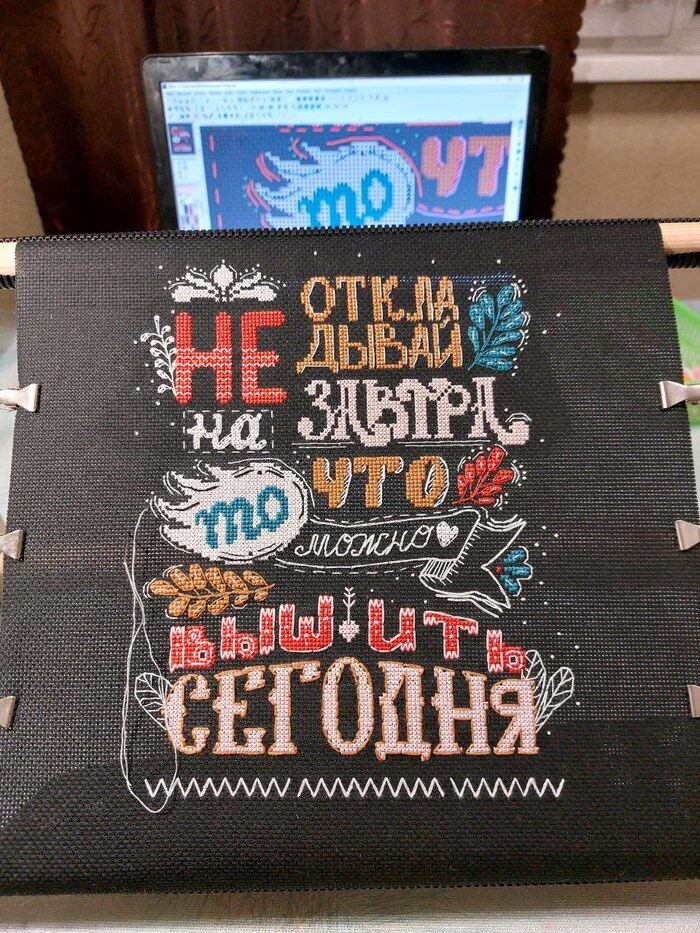 НЕ
ОТКЛА
ДЫВАЙ
на
ЗАВТРА
ЧТО
то
можно
ВЫШИТЬ
СЕГОДНЯ
то
ЧТ